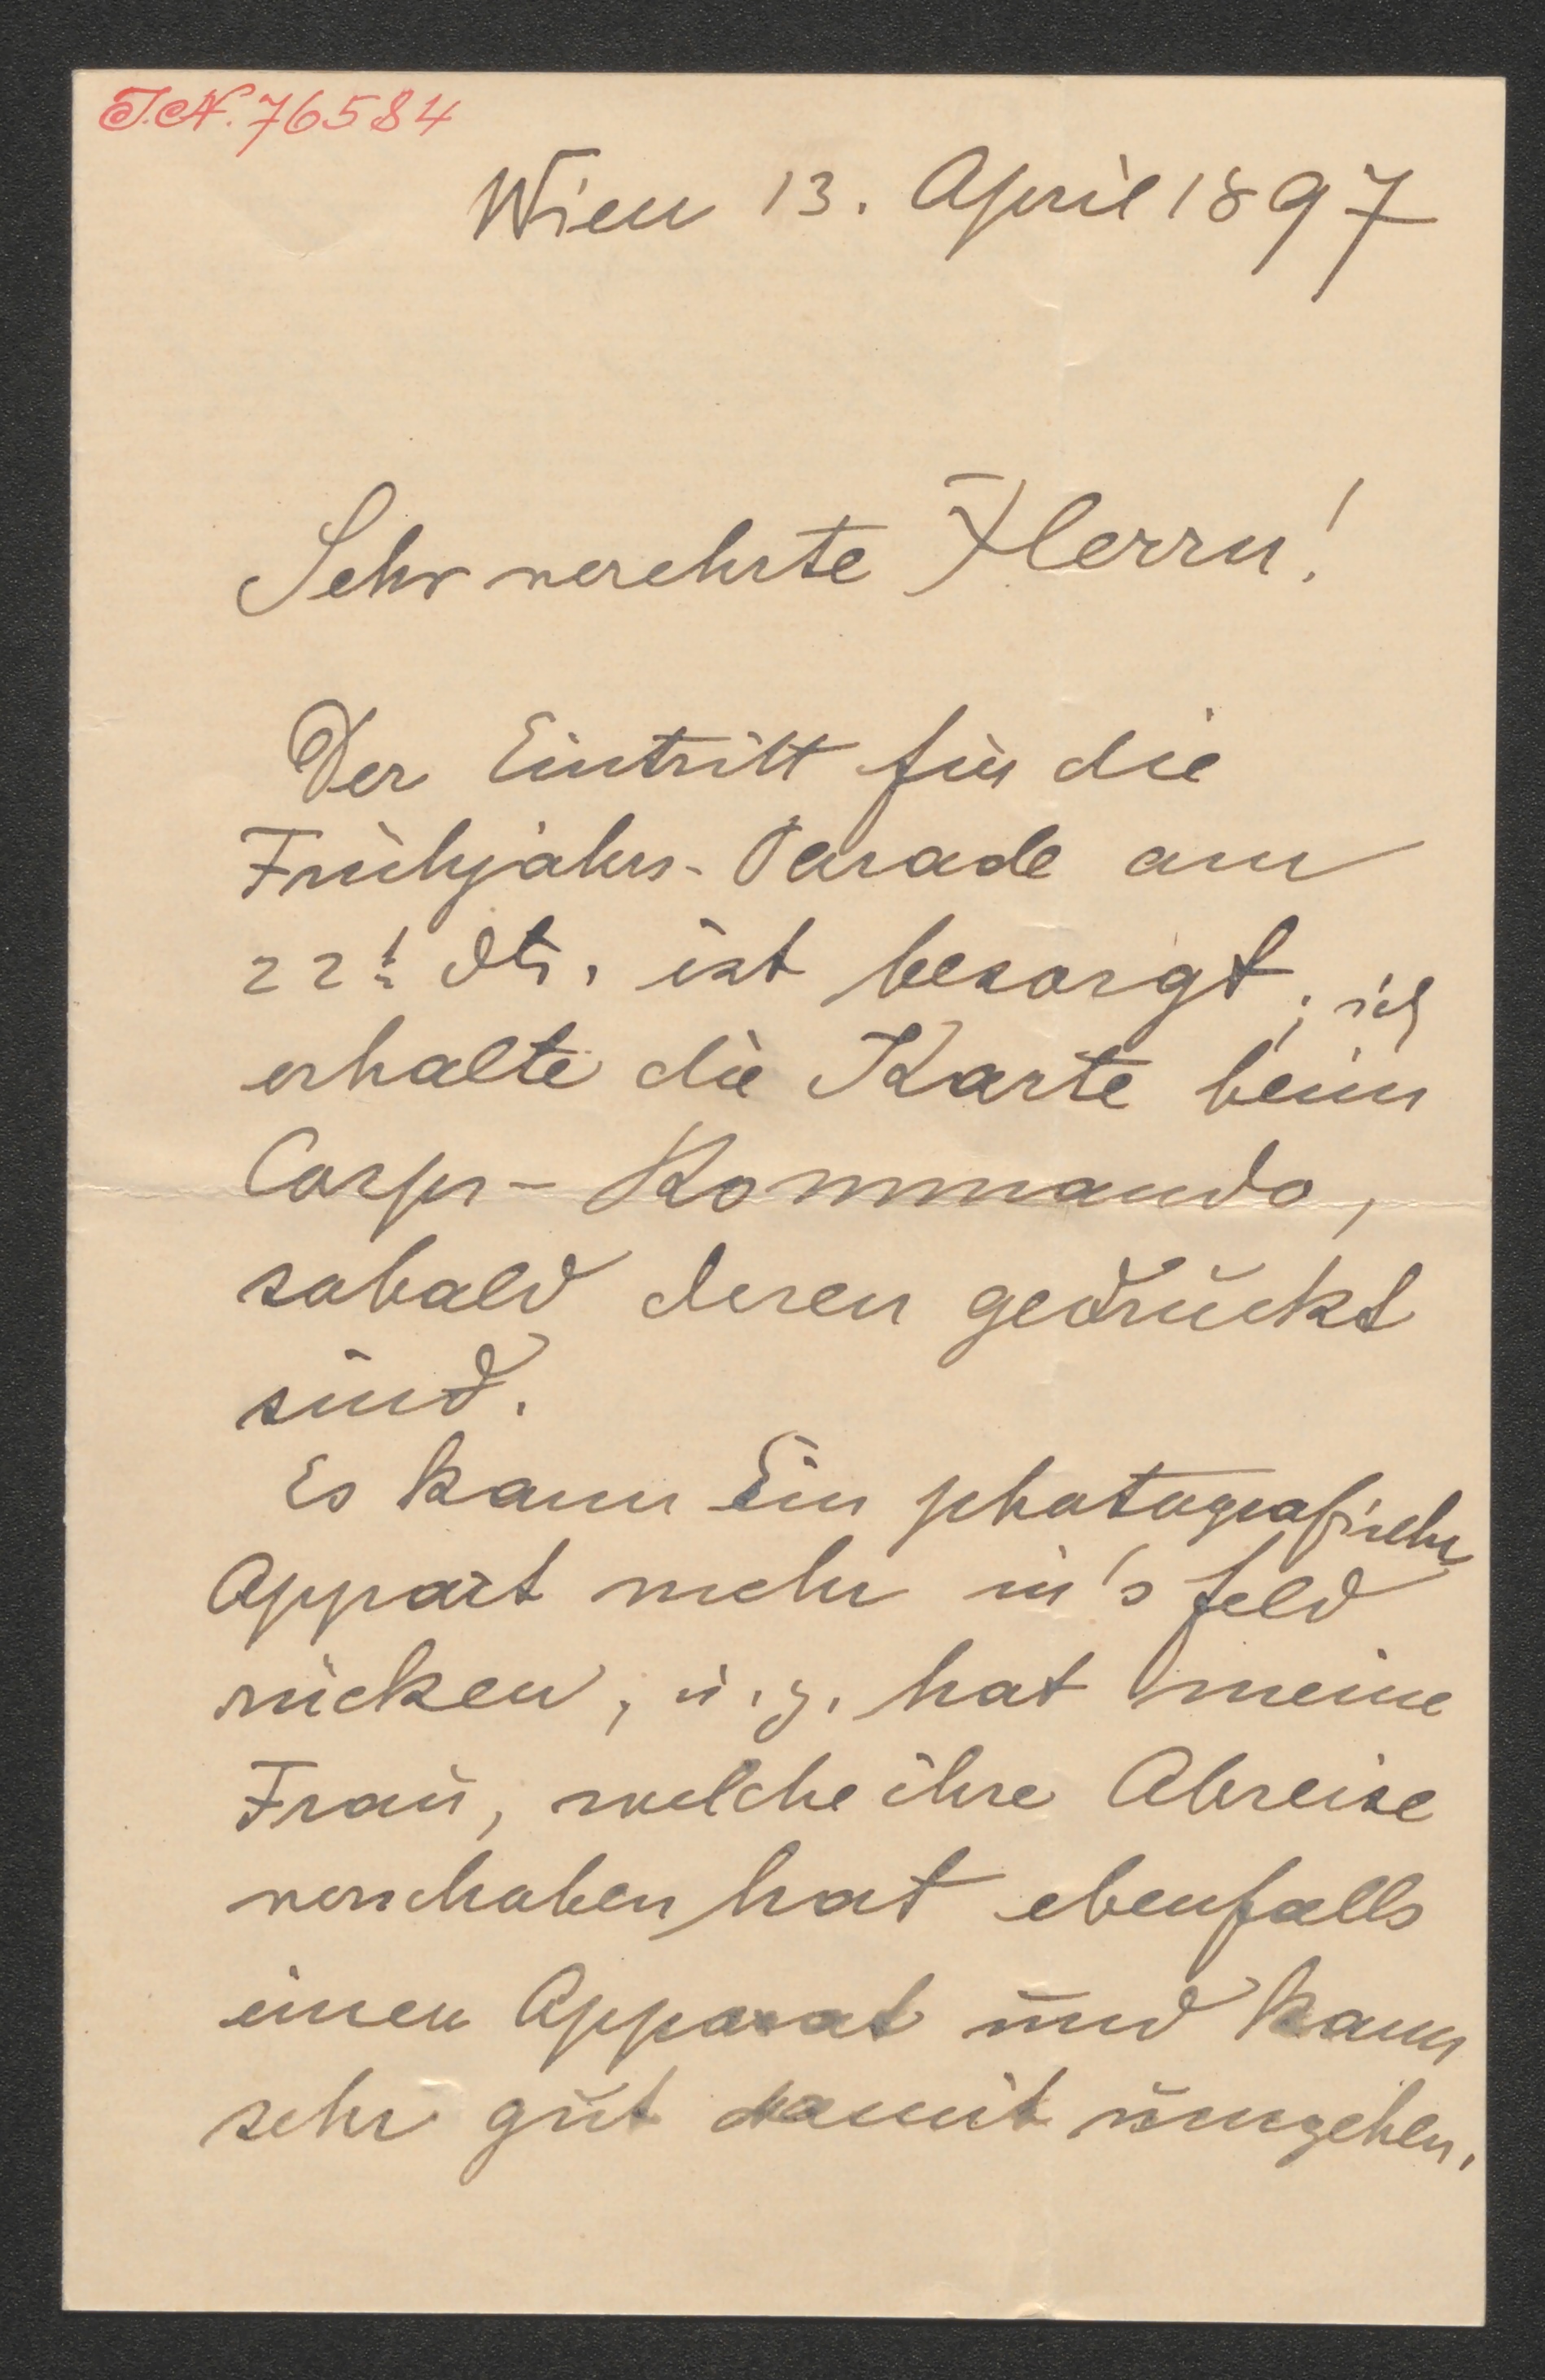 I.N. 76584
Wien 13. April 1897
Sehr verehrte Herrn!
Der Eintritt für die
Frühjahrs-Parade am
22t dts. ist besorgt; ich
erhalte die Karte beim
Corps-Kommando,
sobald deren gedruckt
sind.
Es kann Ein photografischer
Appart mehr in's Feld
rücken, u. z. hat meine
Frau, welche ihre Abreise
verschoben hat ebenfalls
einen Apparat und kann
sehr gut damit umgehen.